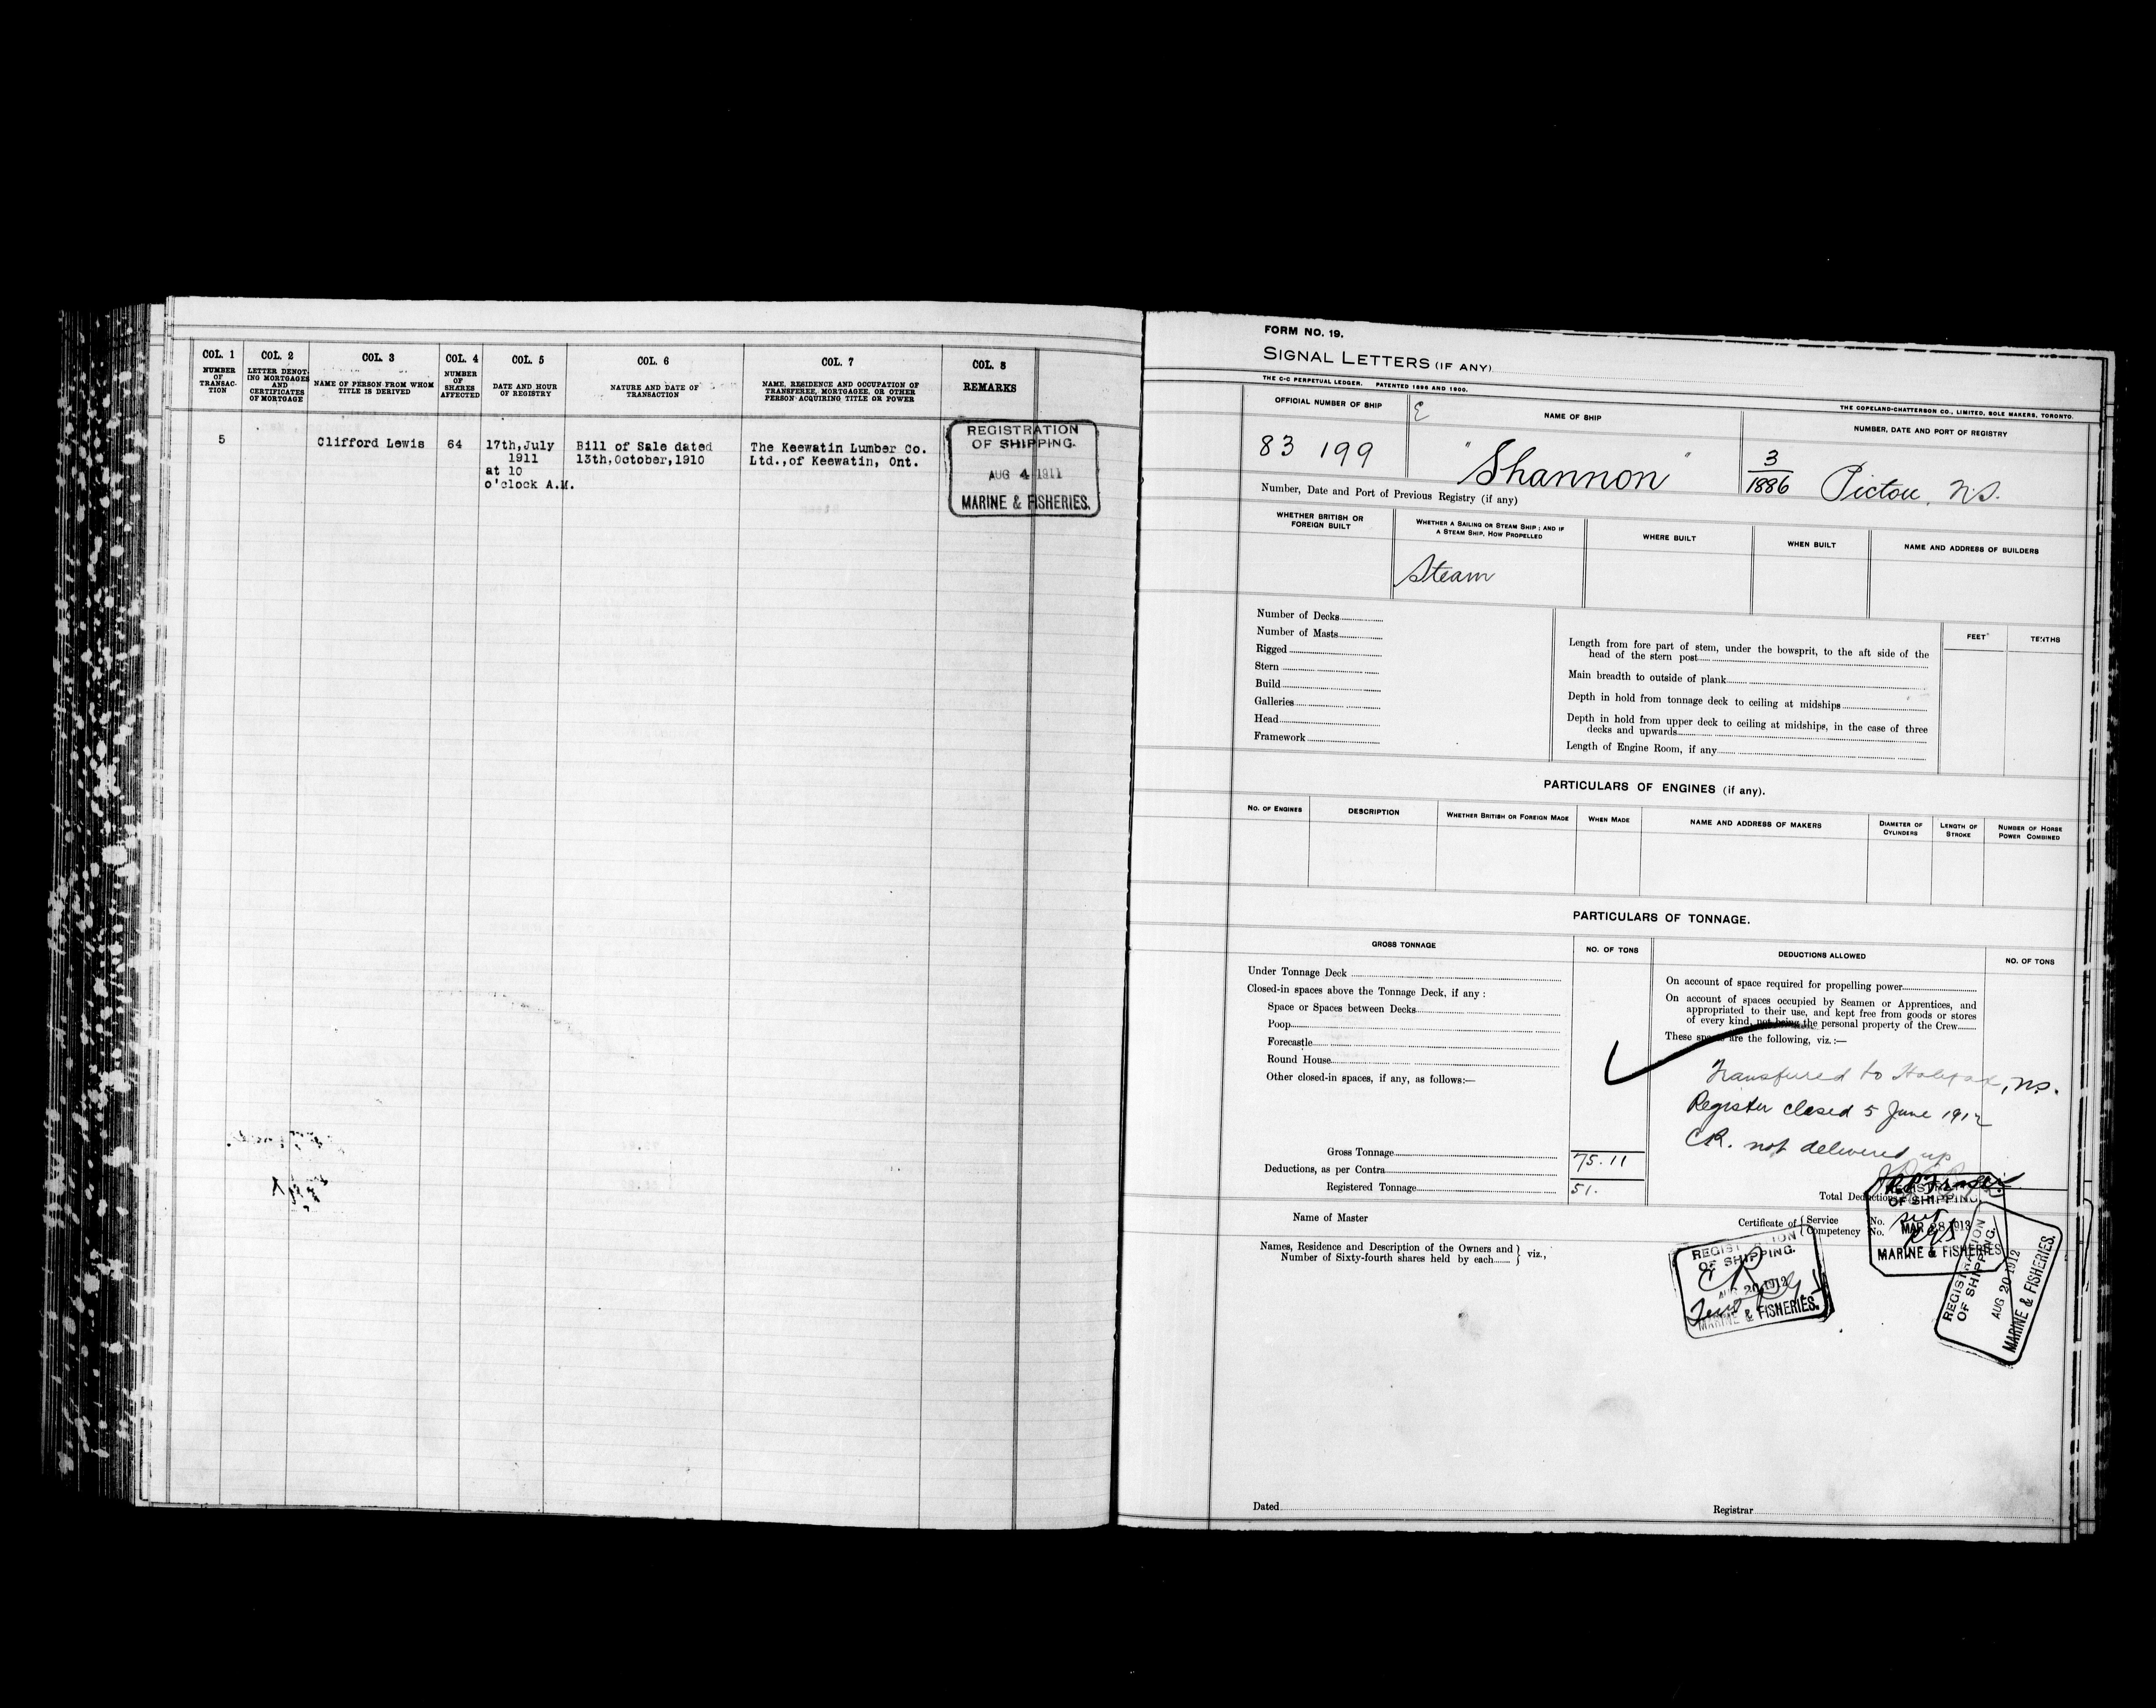 COL. 1
NUMBER
OF
TRANSAC-
TION
COL. 2
LETTER DENOT-
ING MORTGAGES
AND
CERTIFICATES
OF MORTGAGE
COL. 3
NAME OF PERSON FROM WHOM
TITLE IS DERIVED
COL. 4
NUMBER
OF
SHARES
AFFECTED
COL. 5
DATE AND HOUR
OF REGISTRY
COL. 6
NATURE AND DATE OF
TRANSACTION
COL. 7
NAME, RESIDENCE AND OCCUPATION OF
TRANSFEREE, MORTGAGEE, OR OTHER
PERSON ACQUIRING TITLE OR POWER
COL. 8
REMARKS
5
Clifford Lewis
64
17th,July
1911
at 10
o'clock A.M.
Bill of Sale dated
13th,October,1910
The Keewatin Lumber Co.
Ltd.,of Keewatin, Ont.
REGISTRATION
OF SHIPPING.
AUG 4 1911
MARINE & FISHERIES.
FORM NO. 19.
SIGNAL LETTERS (IF ANY)
THE C-C PERPETUAL LEDGER. PATENTED 1896 AND 1900.
THE COPELAND-CHATTERSON CO., LIMITED, SOLE MAKERS, TORONTO.
OFFICIAL NUMBER OF SHIP
NAME OF SHIP
NUMBER, DATE AND PORT OF REGISTRY
83 199
"Shannon"
3
1886
Pictou, N.S.
Number, Date and Port of Previous Registry (if any)
WHETHER BRITISH OR
FOREIGN BUILT
WHETHER A SAILING OR STEAM SHIP; AND IF
A STEAM SHIP, HOW PROPELLED
WHERE BUILT
WHEN BUILT
NAME AND ADDRESS OF BUILDERS
Steam
Number of Decks
Number of Masts
Rigged
Stern
Build
Galleries
Head
Framework
FEET
TENTHS
Length from fore part of stem, under the bowsprit, to the aft side of the
head of the stern post
Main breadth to outside of plank
Depth in hold from tonnage deck to ceiling at midships
Depth in hold from upper deck to ceiling at midships, in the case of three
decks and upwards
Length of Engine Room, if any
PARTICULARS OF ENGINES (if any).
NO. OF ENGINES
DESCRIPTION
WHETHER BRITISH OR FOREIGN MADE
WHEN MADE
NAME AND ADDRESS OF MAKERS
DIAMETER OF
CYLINDERS
LENGTH OF
STROKE
NUMBER OF HORSE
POWER COMBINED
PARTICULARS OF TONNAGE.
GROSS TONNAGE
NO. OF TONS
DEDUCTIONS ALLOWED
NO. OF TONS
Under Tonnage Deck
Closed-in spaces above the Tonnage Deck, if any :
Space or Spaces between Decks
Poop
Forecastle
Round House
Other closed-in spaces, if any, as follows:—
Gross Tonnage
75.11
Deductions, as per Contra
Registered Tonnage
51.
On account of space required for propelling power
On account of spaces occupied by Seamen or Apprentices, and
appropriated to their use, and kept free from goods or stores
of every kind, not being the personal property of the Crew
These spaces are the following, viz.:—
Transferred to Halifax, N.S.
Register closed 5 June 1912
C.R. not delivered up
Total Deductions
Name of Master
Certificate of { Service No.
Competency No.
Names, Residence and Description of the Owners and
Number of Sixty-fourth shares held by each } viz.,
REGISTRATION
OF SHIPPING.
MAR 28 1913
MARINE & FISHERIES
REGISTRATION
OF SHIPPING.
AUG 20 1912
MARINE & FISHERIES.
REGISTRATION
OF SHIPPING.
AUG 20 1912
MARINE & FISHERIES.
Dated
Registrar